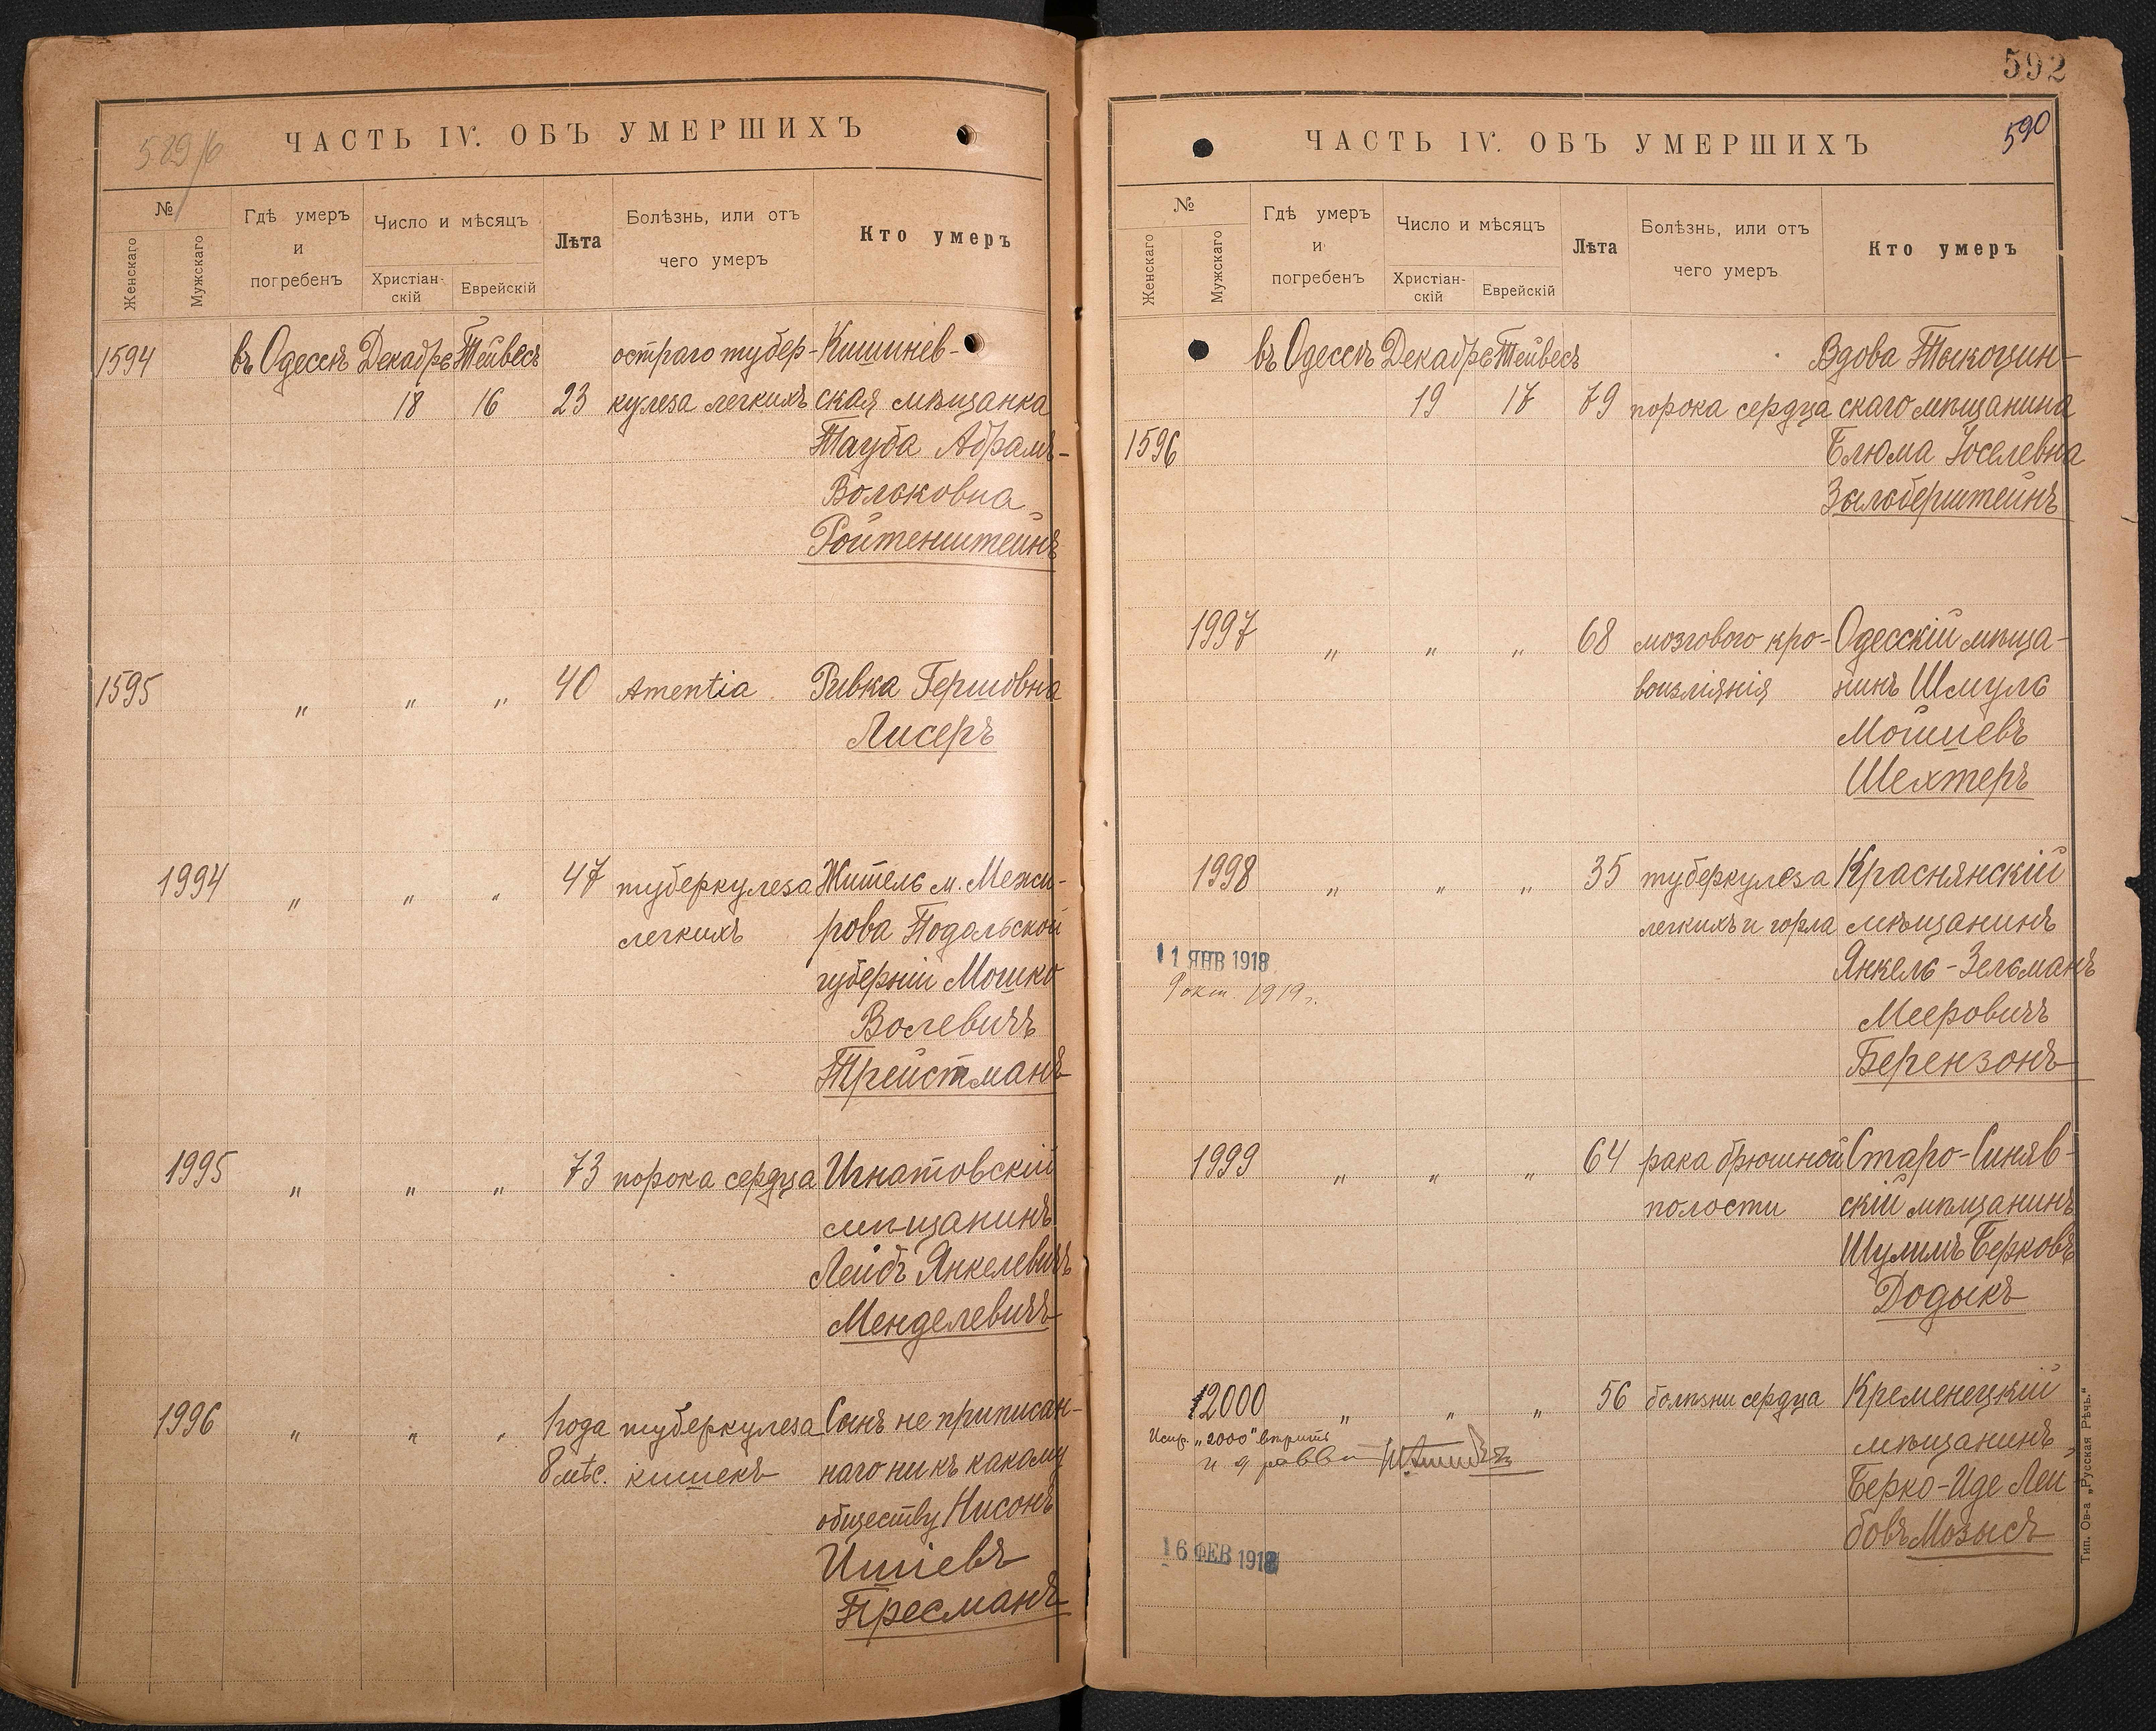 589/б
ЧАСТЬ IV. ОБЪ УМЕРШИХЪ
№
Женскаго
Мужскаго
Гдѣ умеръ
и
погребенъ
Число и мѣсяцъ
Христіан-
скій
Еврейскій
Лѣта
Болѣзнь, или отъ
чего умеръ
Кто умеръ
1594 въ Одессѣ Декабрь Тейвесъ остраго тубер- Кишинев-
18 16 23 кулеза легкихъ ская мѣщанка
Тауба Абрамъ-
Вольковна
Ройтенштейнъ
1595 „ „ „ 40 Amentia Ривка Гершовна
Лисеръ
1994 „ „ „ 47 туберкулеза Житель м. Межи-
легкихъ рова Подольской
губерніи Мошко
Волевичъ
Трейстманъ
1995 „ „ „ 73 порока сердца Игнатовскій
мѣщанинъ
Лейбъ Янкелевичъ
Менделевичъ
1996 „ „ „ 1 года туберкулеза Сынъ не приписан-
8 мѣс. кишекъ наго ни къ какому
обществу Нисонъ
Ишіевъ
Пресманъ
592
590
ЧАСТЬ IV. ОБЪ УМЕРШИХЪ
№
Женскаго
Мужскаго
Гдѣ умеръ
и
погребенъ
Число и мѣсяцъ
Христіан-
скій
Еврейскій
Лѣта
Болѣзнь, или отъ
чего умеръ
Кто умеръ
въ Одессѣ Декабрь Тейвесъ Вдова Тыкоцин-
19 17 79 порока сердца скаго мѣщанина
1596 Блюма Іоселевна
Зильберштейнъ
1997 „ „ „ 68 мозгового кро- Одесскій мѣща-
воизліянія нинъ Шмуль
Мошіевъ
Шехтеръ
1998 „ „ „ 35 туберкулеза Краснянскій
легкихъ и горла мѣщанинъ
11 ЯНВ 1918 Янкель-Зельманъ
9 окт. 1919 г.
Мееровичъ
Берензонъ
1999 „ „ „ 64 рака брюшной Старо-Синяв-
полости скій мѣщанинъ
Шулимъ Берковъ
Додыкъ
2000 „ „ „ 56 болѣзни сердца Кременецкій
Испр. „2000“ вѣрить мѣщанинъ
Берко-Иде Лей
бовъ Мозысъ
16 ФЕВ 1918
Тип. Ов-а „Русская Рѣчь.“